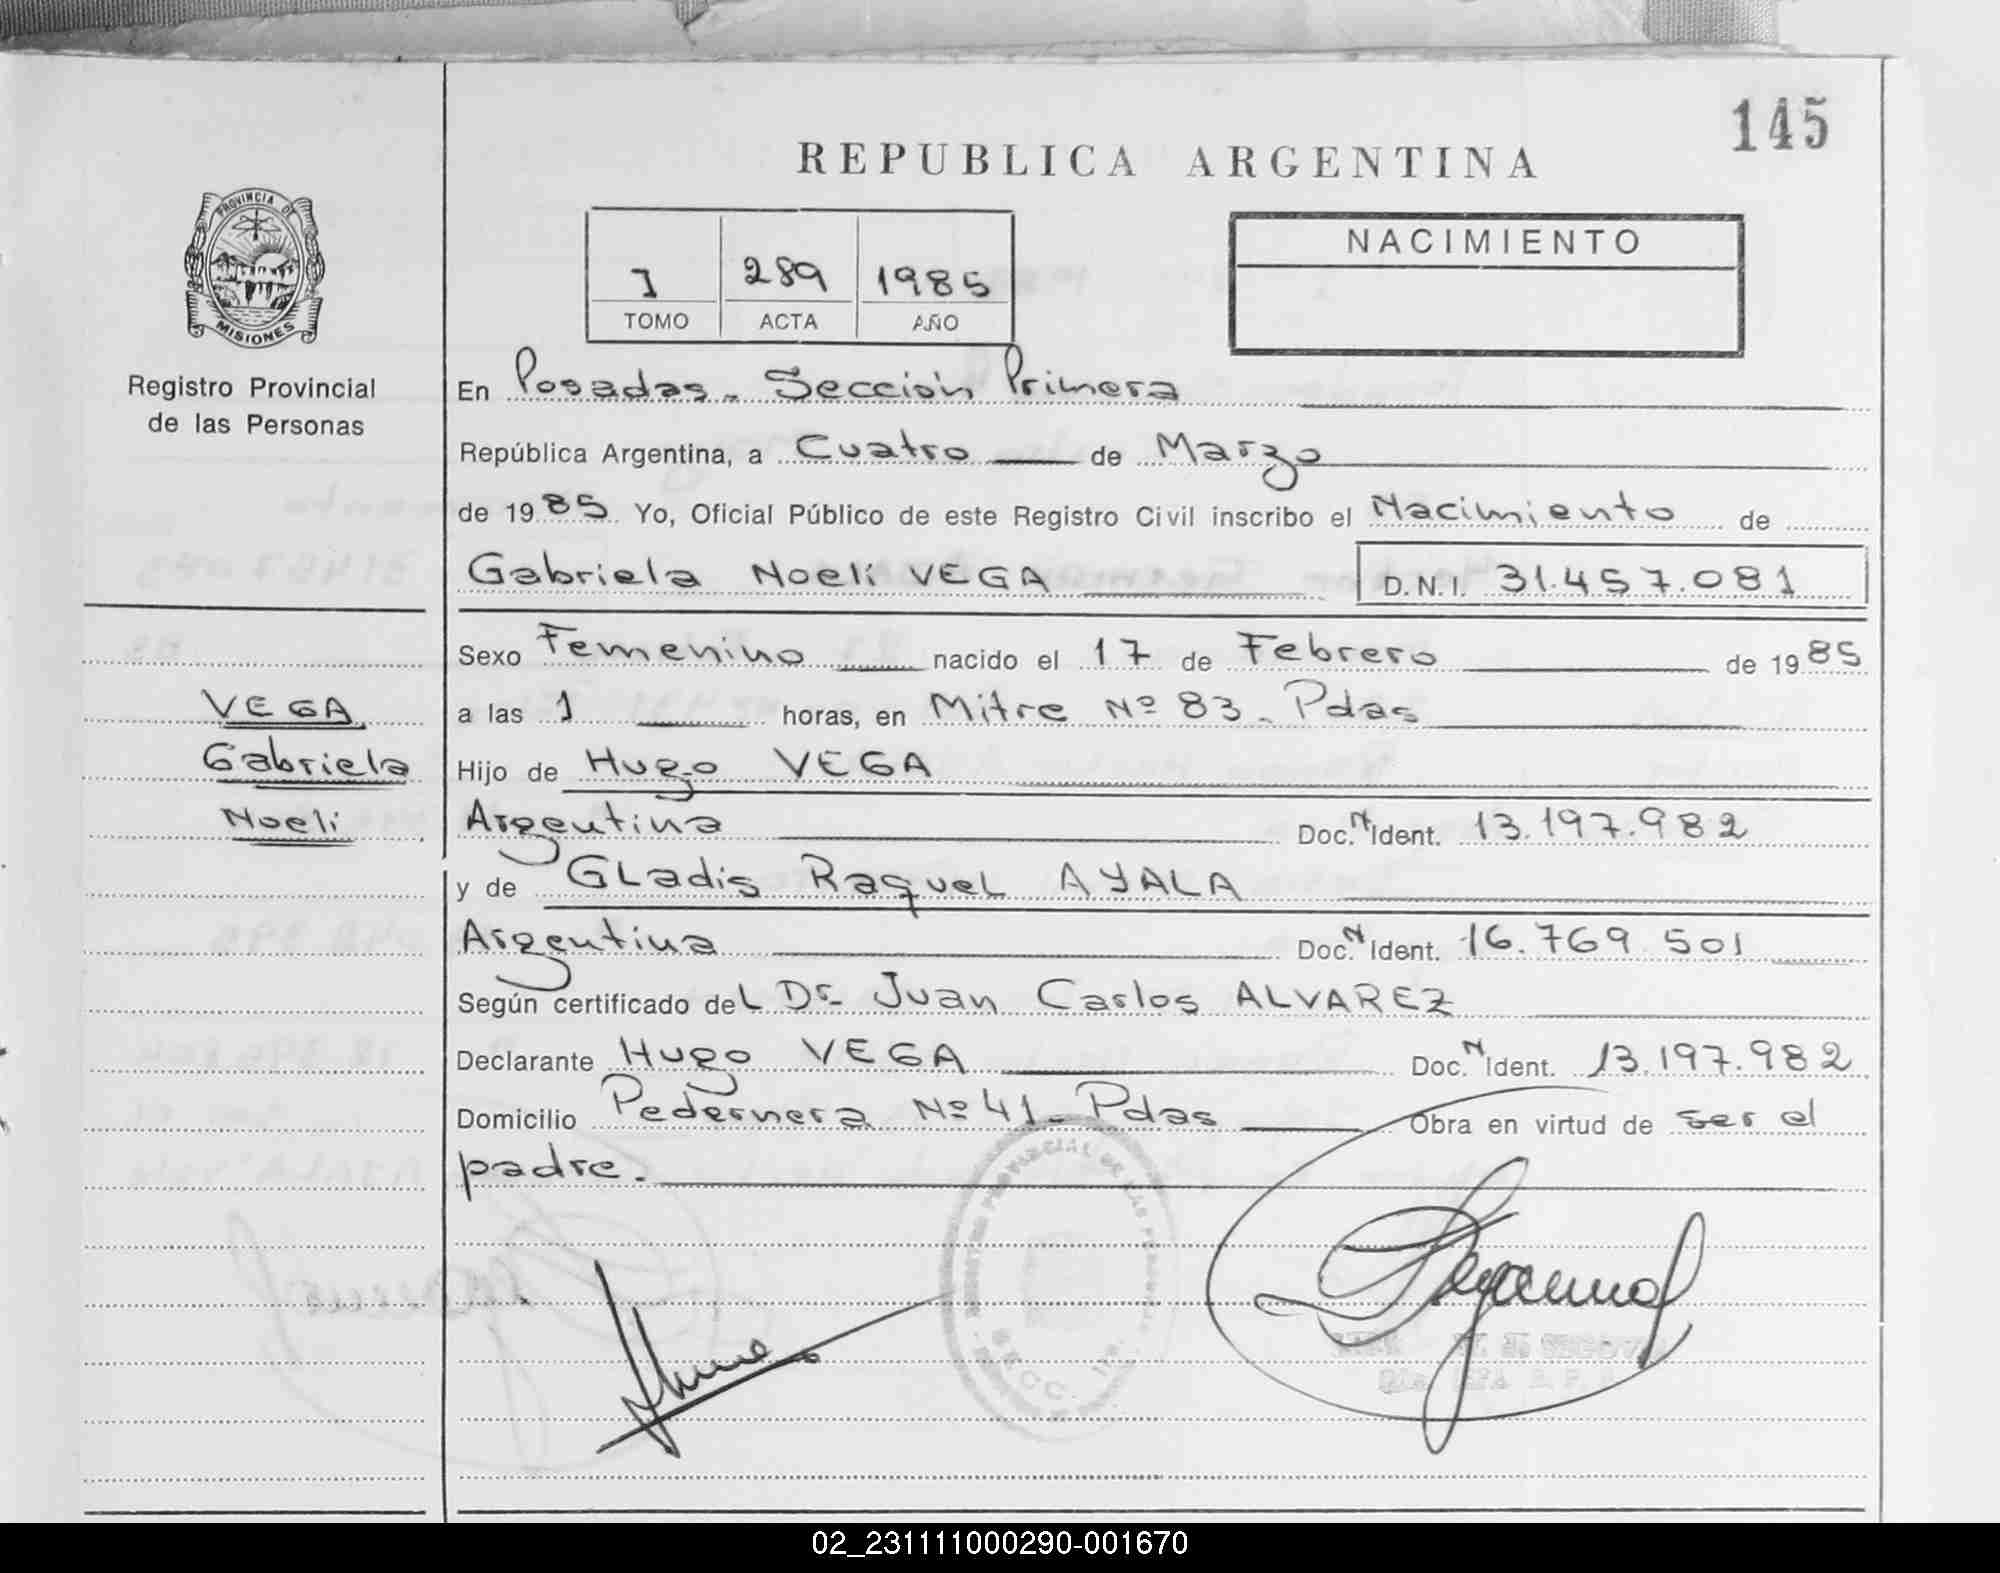 145
REPUBLICA ARGENTINA
PROVINCIA DE
MISIONES
Registro Provincial
de las Personas
1 289 1985
TOMO ACTA AÑO
NACIMIENTO
En Posadas. Sección Primera
República Argentina, a Cuatro de Marzo
de 1985 Yo, Oficial Público de este Registro Civil inscribo el Nacimiento de
Gabriela Noeli VEGA D.N.I. 31.457.081
Sexo Femenino nacido el 17 de Febrero de 1985
VEGA
Gabriela
Noeli
a las 1 horas, en Mitre Nº 83. Pdas
Hijo de Hugo VEGA
Argentina Doc.N Ident. 13.197.982
y de GLadis RaqueL AYALA
Argentina Doc.N Ident. 16.769.501
Según certificado deL Dr. Juan Carlos ALVAREZ
Declarante Hugo VEGA Doc.N Ident. 13.197.982
Domicilio Pedernera Nº 41. Pdas Obra en virtud de ser el
padre.
REGISTRO PROVINCIAL DE LAS PERSONAS
SECC. 1ra.
02_231111000290-001670